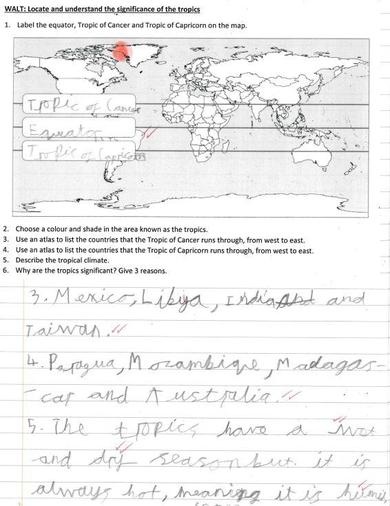 WALT: Locate and understand the significance of the tropics
1. Label the equator, Tropic of Cancer and Tropic of Capricorn on the map.
Tropic of Cancer
Equator
Tropic of Capricorn
2. Choose a colour and shade in the area known as the tropics.
3. Use an atlas to list the countries that the Tropic of Cancer runs through, from west to east.
4. Use an atlas to list the countries that the Tropic of Capricorn runs through, from west to east.
5. Describe the tropical climate.
6. Why are the tropics significant? Give 3 reasons.
3. Mexico, Libya, India and
Taiwan.
4. Paragua, Mozambique, Madagas-
-car and Australia.
5. The tropics have a wet
and dry season but it is
always hot, meaning it is